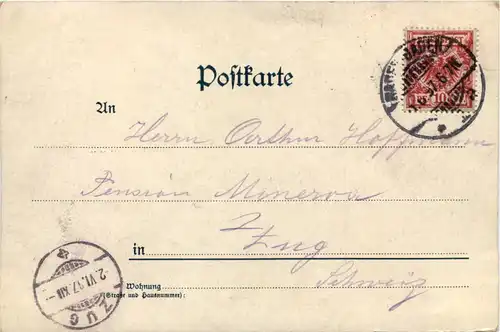 Postkarte
BADEN-BADEN
10
An
Herrn Arthur Hoffmann
Pension Minerva
Zug
in
Schweiz
Wohnung
(Straße und Hausnummer):
ZUG
2.VI.97.XII